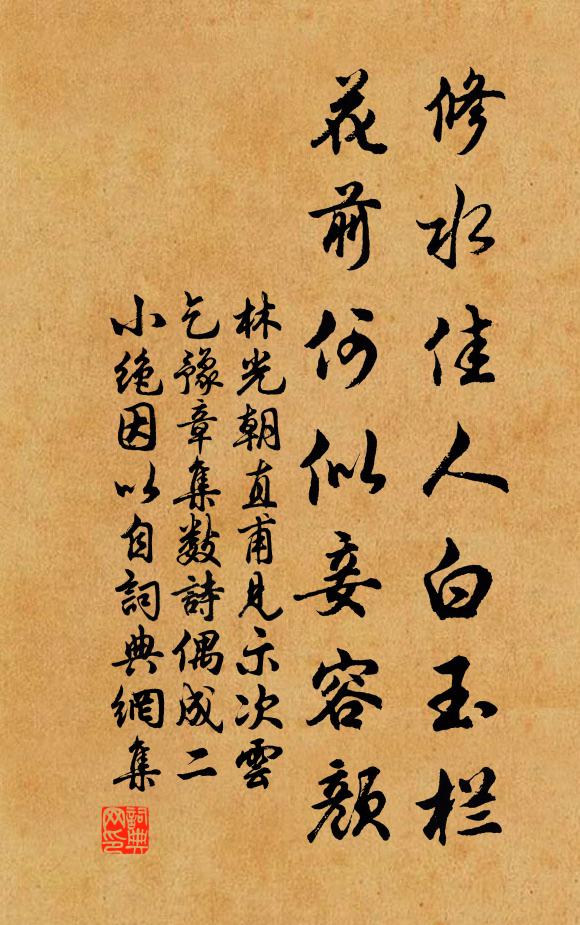 修水佳人白玉栏
花前何似妾容颜
林光朝直甫見示次雲
乞豫章集数詩偶成二
小绝因以自詞典網集
詞典網印